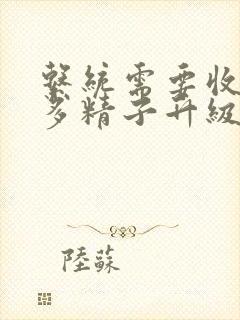 繫統需要收
多精子升級
陸蘇